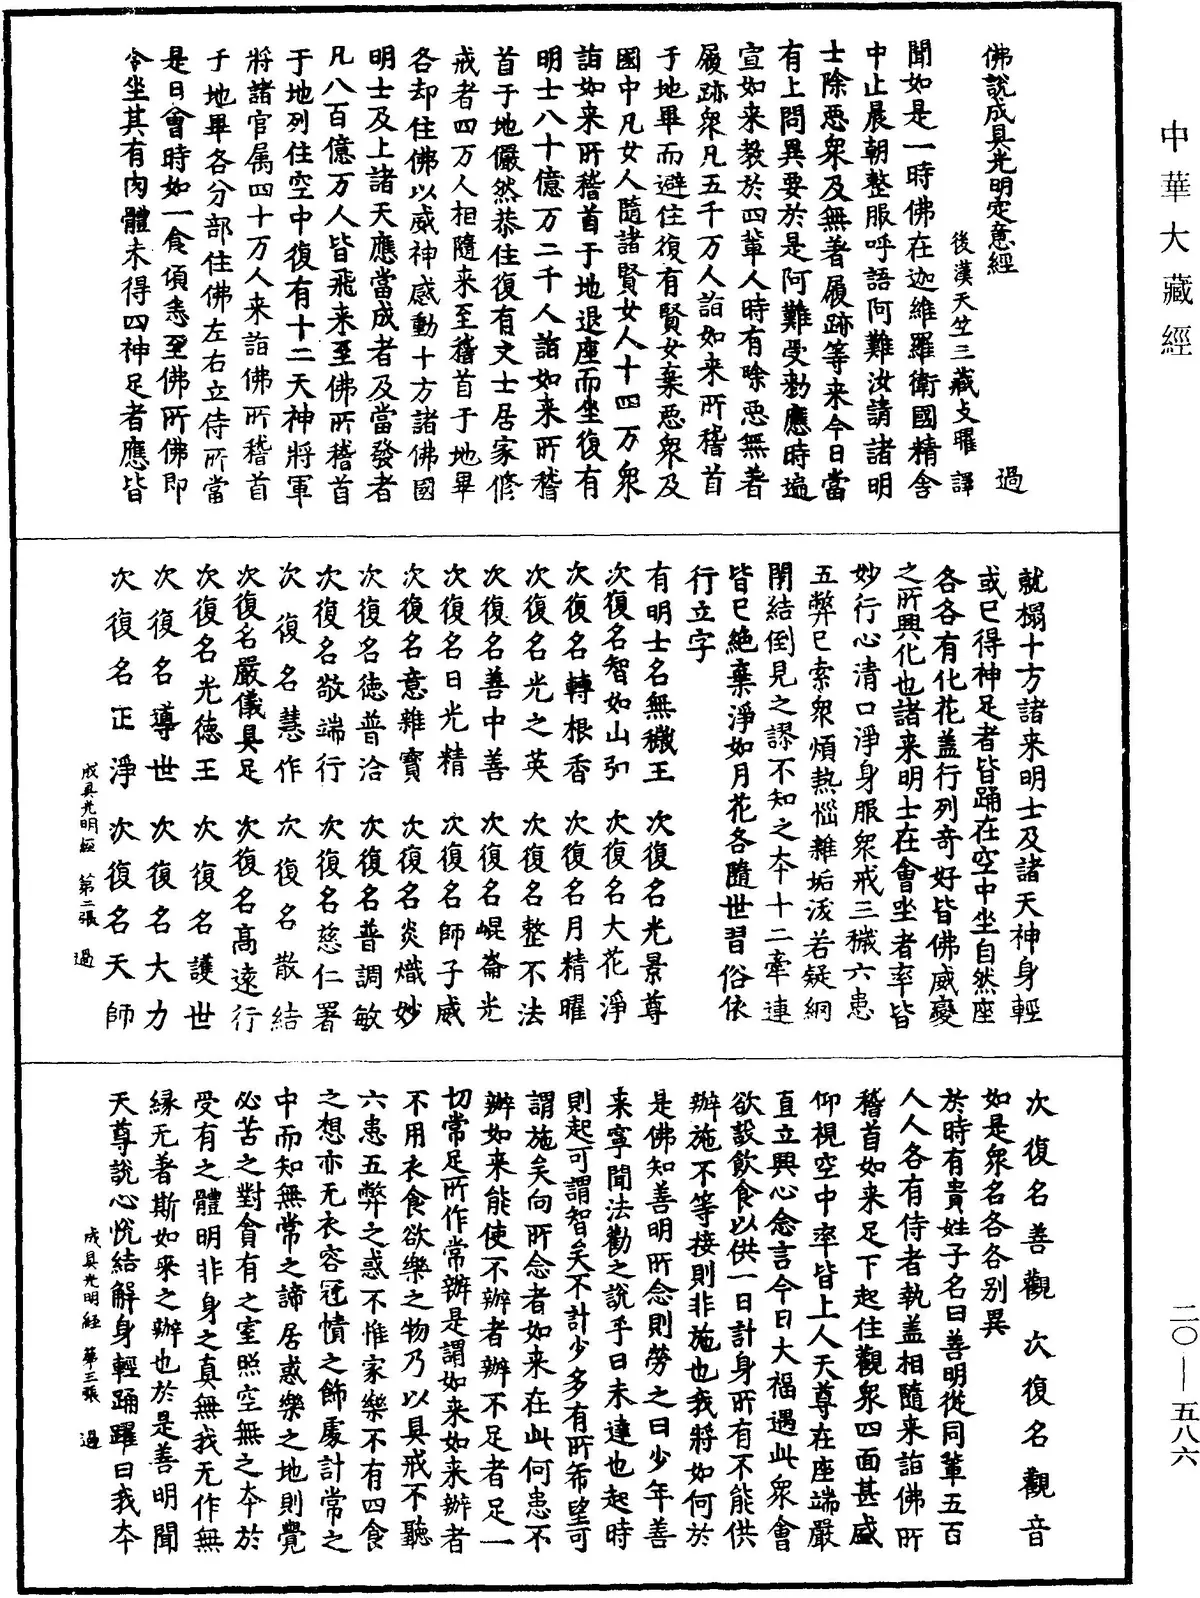 中華大藏經
二〇—五八六
佛說成具光明定意經　過
後漢天竺三藏支曜　譯
聞如是一時佛在迦維羅衛國精舍
中止晨朝整服呼語阿難汝請諸明
士除惡眾及無著履跡等来今日當
有上問異要於是阿難受勑應時遍
宣如来教於四輩人時有除惡無著
履跡眾凡五千万人詣如来所稽首
于地畢而避住復有賢女棄惡眾及
國中凡女人隨諸賢女人十四万眾
詣如来所稽首于地退座而坐復有
明士八十億万二千人詣如来所稽
首于地儼然恭住復有文士居家修
戒者四万人相隨来至稽首于地畢
各却住佛以威神感動十方諸佛國
明士及上諸天應當成者及當發者
凡八百億万人皆飛来至佛所稽首
于地列住空中復有十二天神將軍
將諸官属四十万人来詣佛所稽首
于地畢各分部住佛左右立侍所當
是日會時如一食頃悉至佛所佛即
令坐其有肉體未得四神足者應皆
就榻十方諸来明士及諸天神身輕
或已得神足者皆踊在空中坐自然座
各各有化花蓋行列奇好皆佛威變
之所興化也諸来明士在會坐者率皆
妙行心清口淨身服眾戒三穢六患
五弊已索眾煩熱惱雜垢
若疑網
閉結倒見之謬不知之本十二牽連
皆已絕棄淨如月花各隨世習俗依
行立字
有明士名無穢王　次復名光景尊
次復名智如山弘　次復名大花淨
次復名轉根香　次復名月精曜
次復名光之英　次復名整不法
次復名善中善　次復名崐崙光
次復名日光精　次復名師子威
次復名意雜寶　次復名炎熾妙
次復名德普洽　次復名普調敏
次復名敬端行　次復名慈仁署
次復名慧作　次復名散結
次復名嚴儀具足　次復名高遠行
次復名光德王　次復名護世
次復名導世　次復名大力
次復名正淨　次復名天師
成具光明經　第二張　過
次復名善觀　次復名觀音
如是眾名各各别異
於時有貴姓子名曰善明從同輩五百
人人各有侍者執蓋相隨来詣佛所
稽首如来足下起住觀眾四面甚盛
仰視空中率皆上人天尊在座端嚴
直立興心念言今日大福遇此眾會
欲設飲食以供一日計身所有不能供
辦施不等接則非施也我將如何於
是佛知善明所念則勞之曰少年善
来寧聞法勸之說乎曰未達也起時
則起可謂智矣不計少多有所希望可
謂施矣向所念者如来在此何患不
辦如来能使不辦者辦不足者足一
切常足所作常辦是謂如来如来辦者
不用衣食欲樂之物乃以具戒不聽
六患五弊之惑不惟家樂不有四食
之想亦无衣容冠幘之飾處計常之
中而知無常之諦居惑樂之地則覺
必苦之對貪有之室照空無之本於
受有之體明非身之真無我无作無
緣无著斯如来之辦也於是善明聞
天尊說心悅結解身輕踊躍曰我本
成具光明經　第三張　過